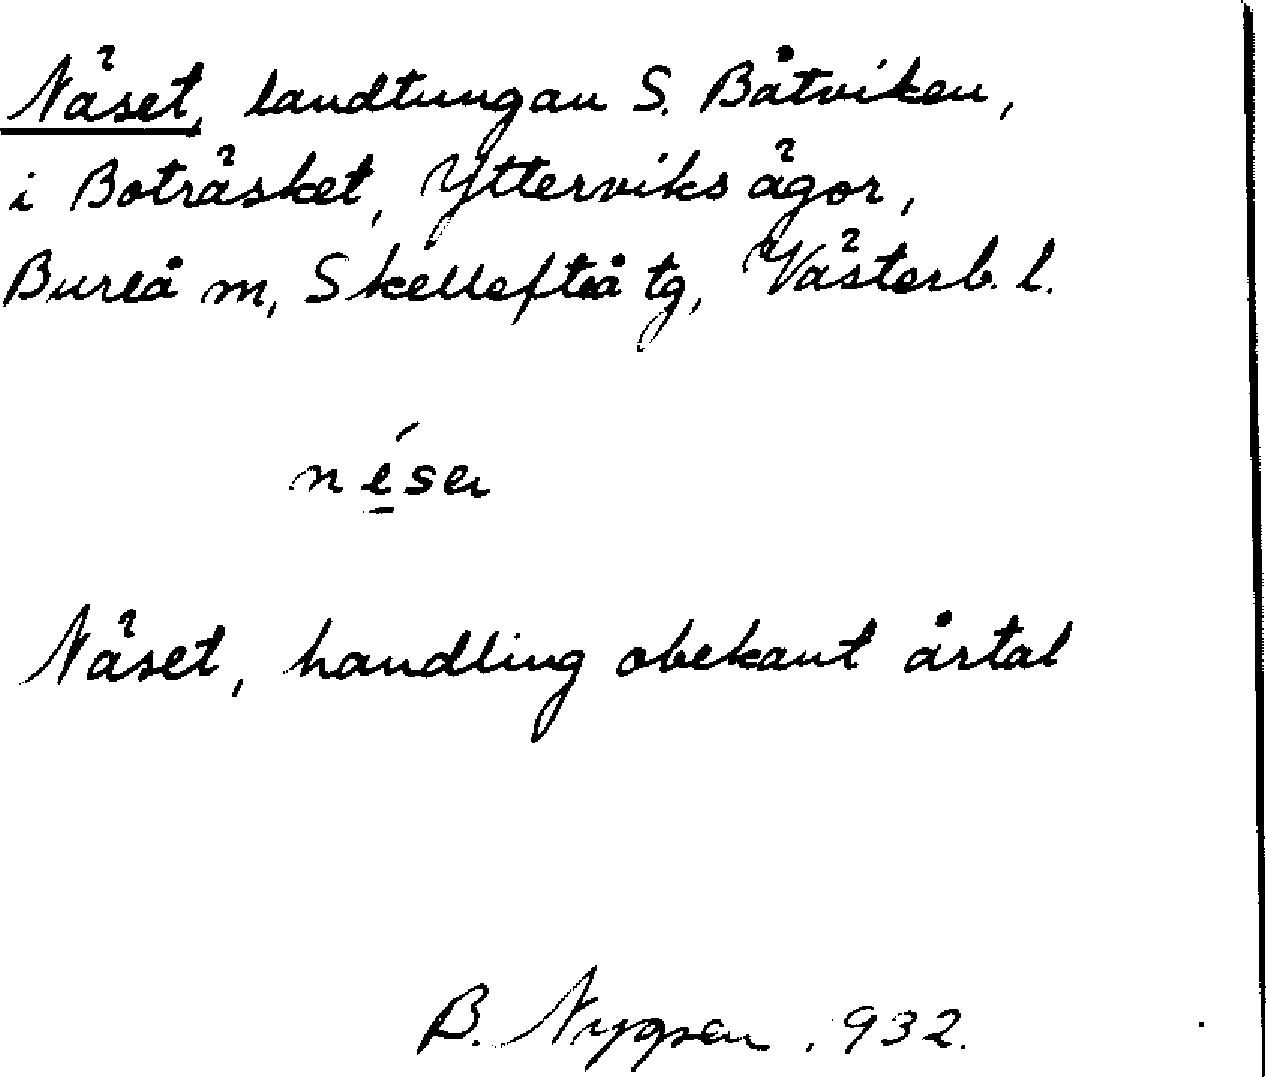 Näset, landtungan S. Båtviken,
i Boträsket, Ytterviks ägor,
Bureå m, Skellefteå tg, Västerb. l.
nése
Näset, handling obekant årtal
B. Nygren. 932.